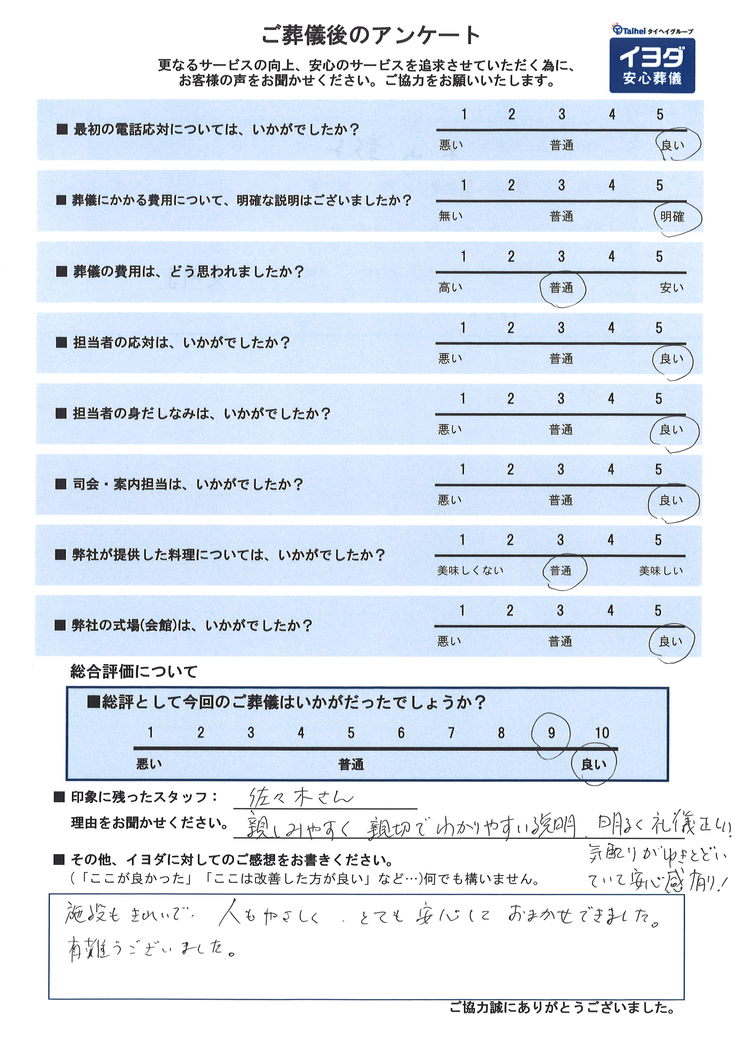 ご葬儀後のアンケート
Taihei タイヘイグループ
イヨダ
安心葬儀
更なるサービスの向上、安心のサービスを追求させていただく為に、
お客様の声をお聞かせください。ご協力をお願いいたします。
■ 最初の電話応対については、いかがでしたか？
1 2 3 4 5
悪い 普通 良い
■ 葬儀にかかる費用について、明確な説明はございましたか？
1 2 3 4 5
無い 普通 明確
■ 葬儀の費用は、どう思われましたか？
1 2 3 4 5
高い 普通 安い
■ 担当者の応対は、いかがでしたか？
1 2 3 4 5
悪い 普通 良い
■ 担当者の身だしなみは、いかがでしたか？
1 2 3 4 5
悪い 普通 良い
■ 司会・案内担当は、いかがでしたか？
1 2 3 4 5
悪い 普通 良い
■ 弊社が提供した料理については、いかがでしたか？
1 2 3 4 5
美味しくない 普通 美味しい
■ 弊社の式場(会館)は、いかがでしたか？
1 2 3 4 5
悪い 普通 良い
総合評価について
■総評として今回のご葬儀はいかがだったでしょうか？
1 2 3 4 5 6 7 8 9 10
悪い 普通 良い
■ 印象に残ったスタッフ： 佐々木さん
理由をお聞かせください。 親しみやすく 親切でわかりやすい説明、明るく礼儀正しい!
気配りがゆきとどい
ていて安心感有り!
■ その他、イヨダに対してのご感想をお書きください。
(「ここが良かった」「ここは改善した方が良い」など…)何でも構いません。
施設もきれいで、人もやさしく、とても安心して おまかせできました。
有難うございました。
ご協力誠にありがとうございました。